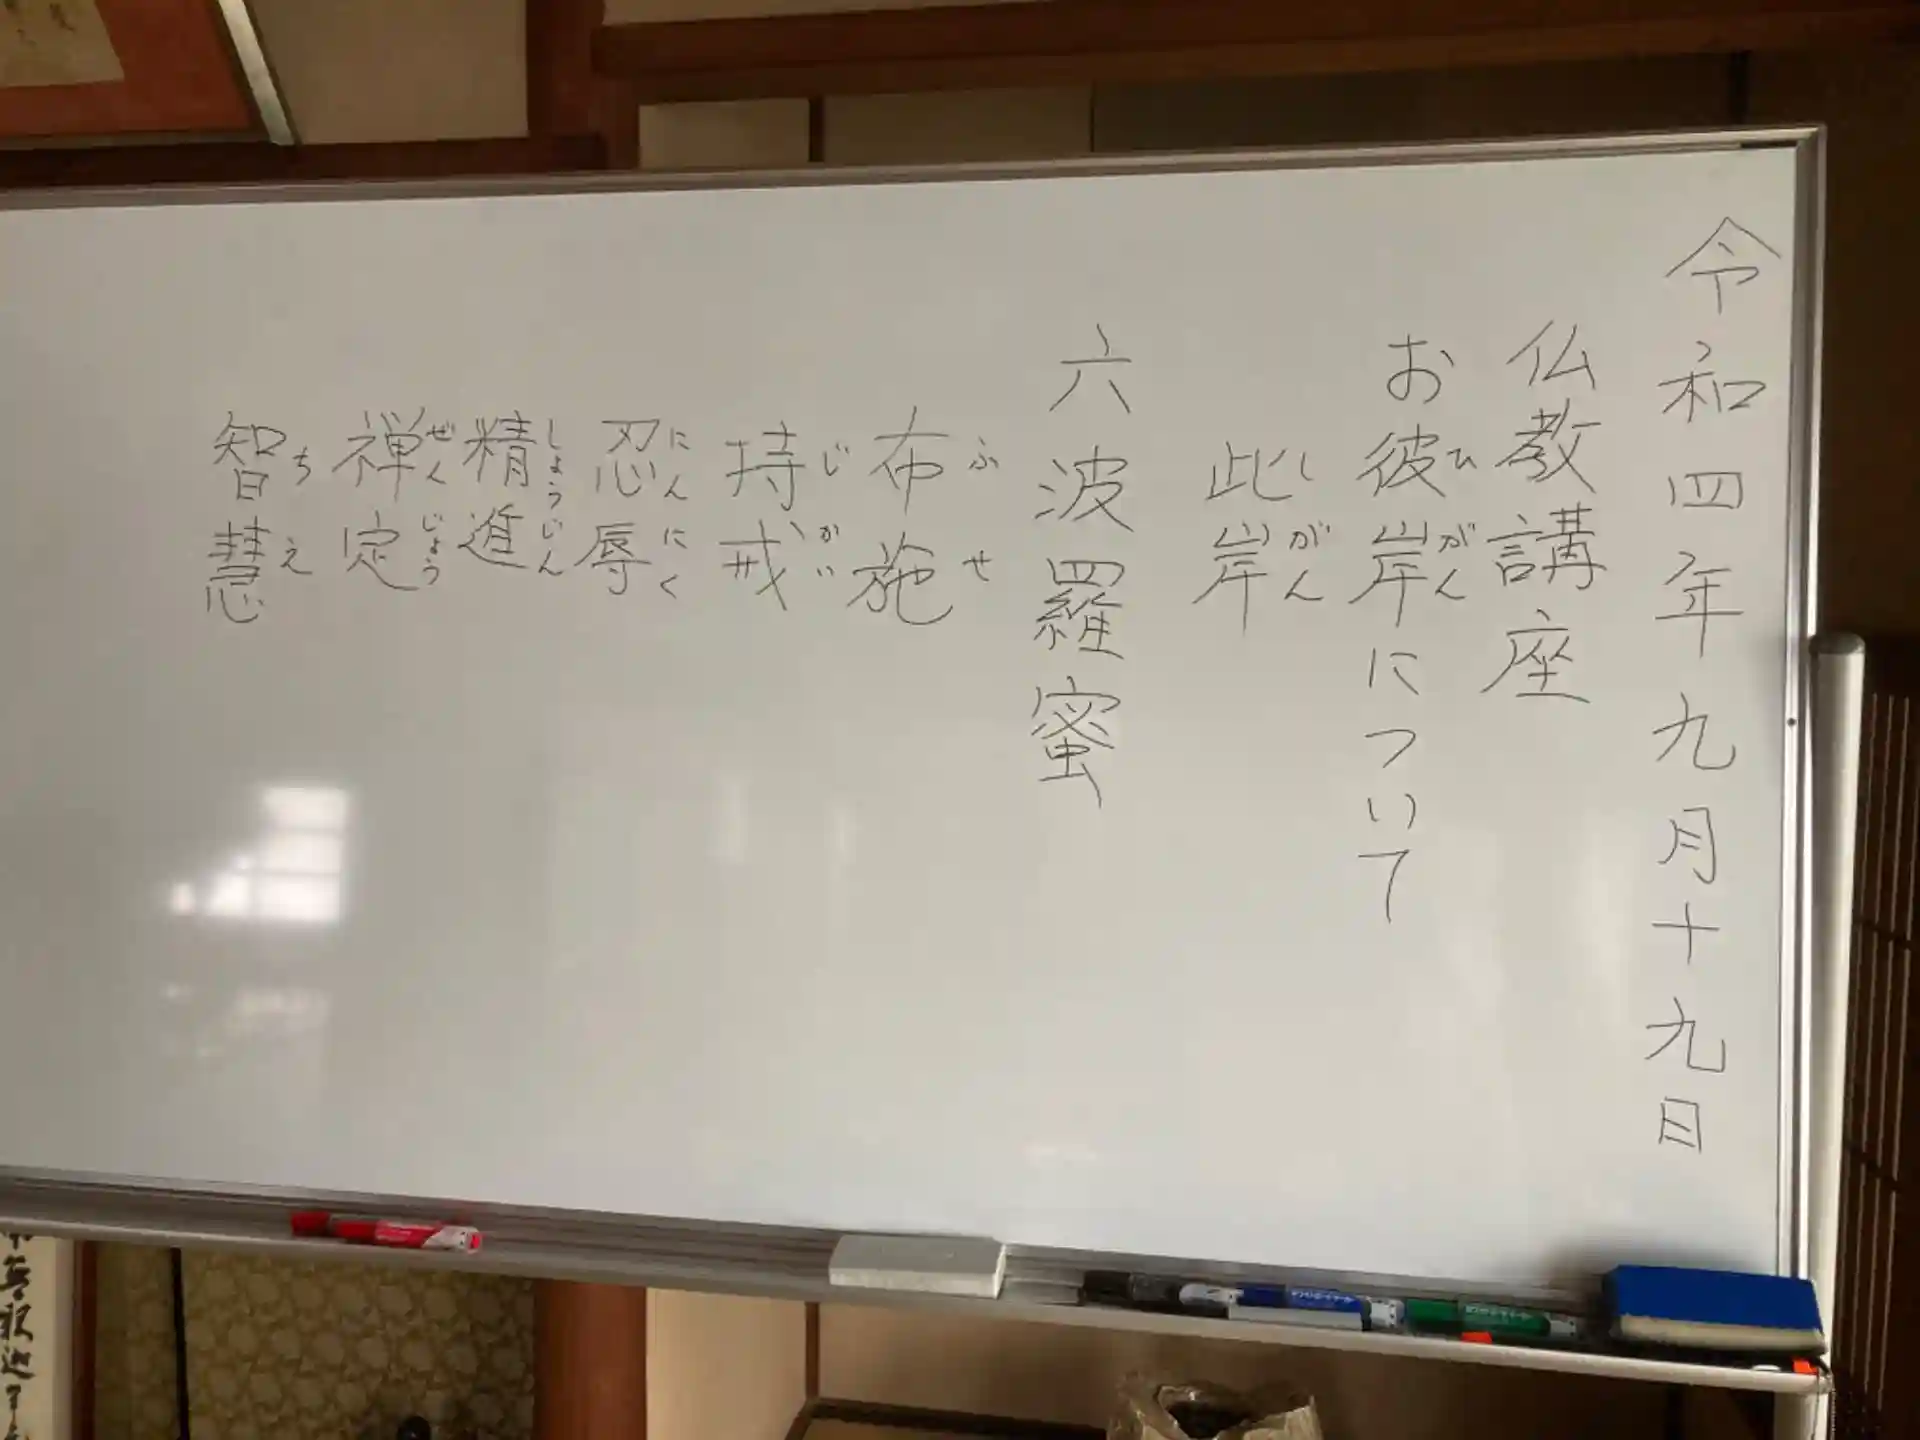 令和四年九月十九日
仏教講座
お彼岸について
ひがん
此岸
しがん
六波羅蜜
布施
ふせ
持戒
じかい
忍辱
にんにく
精進
しょうじん
禅定
ぜんじょう
智慧
ちえ